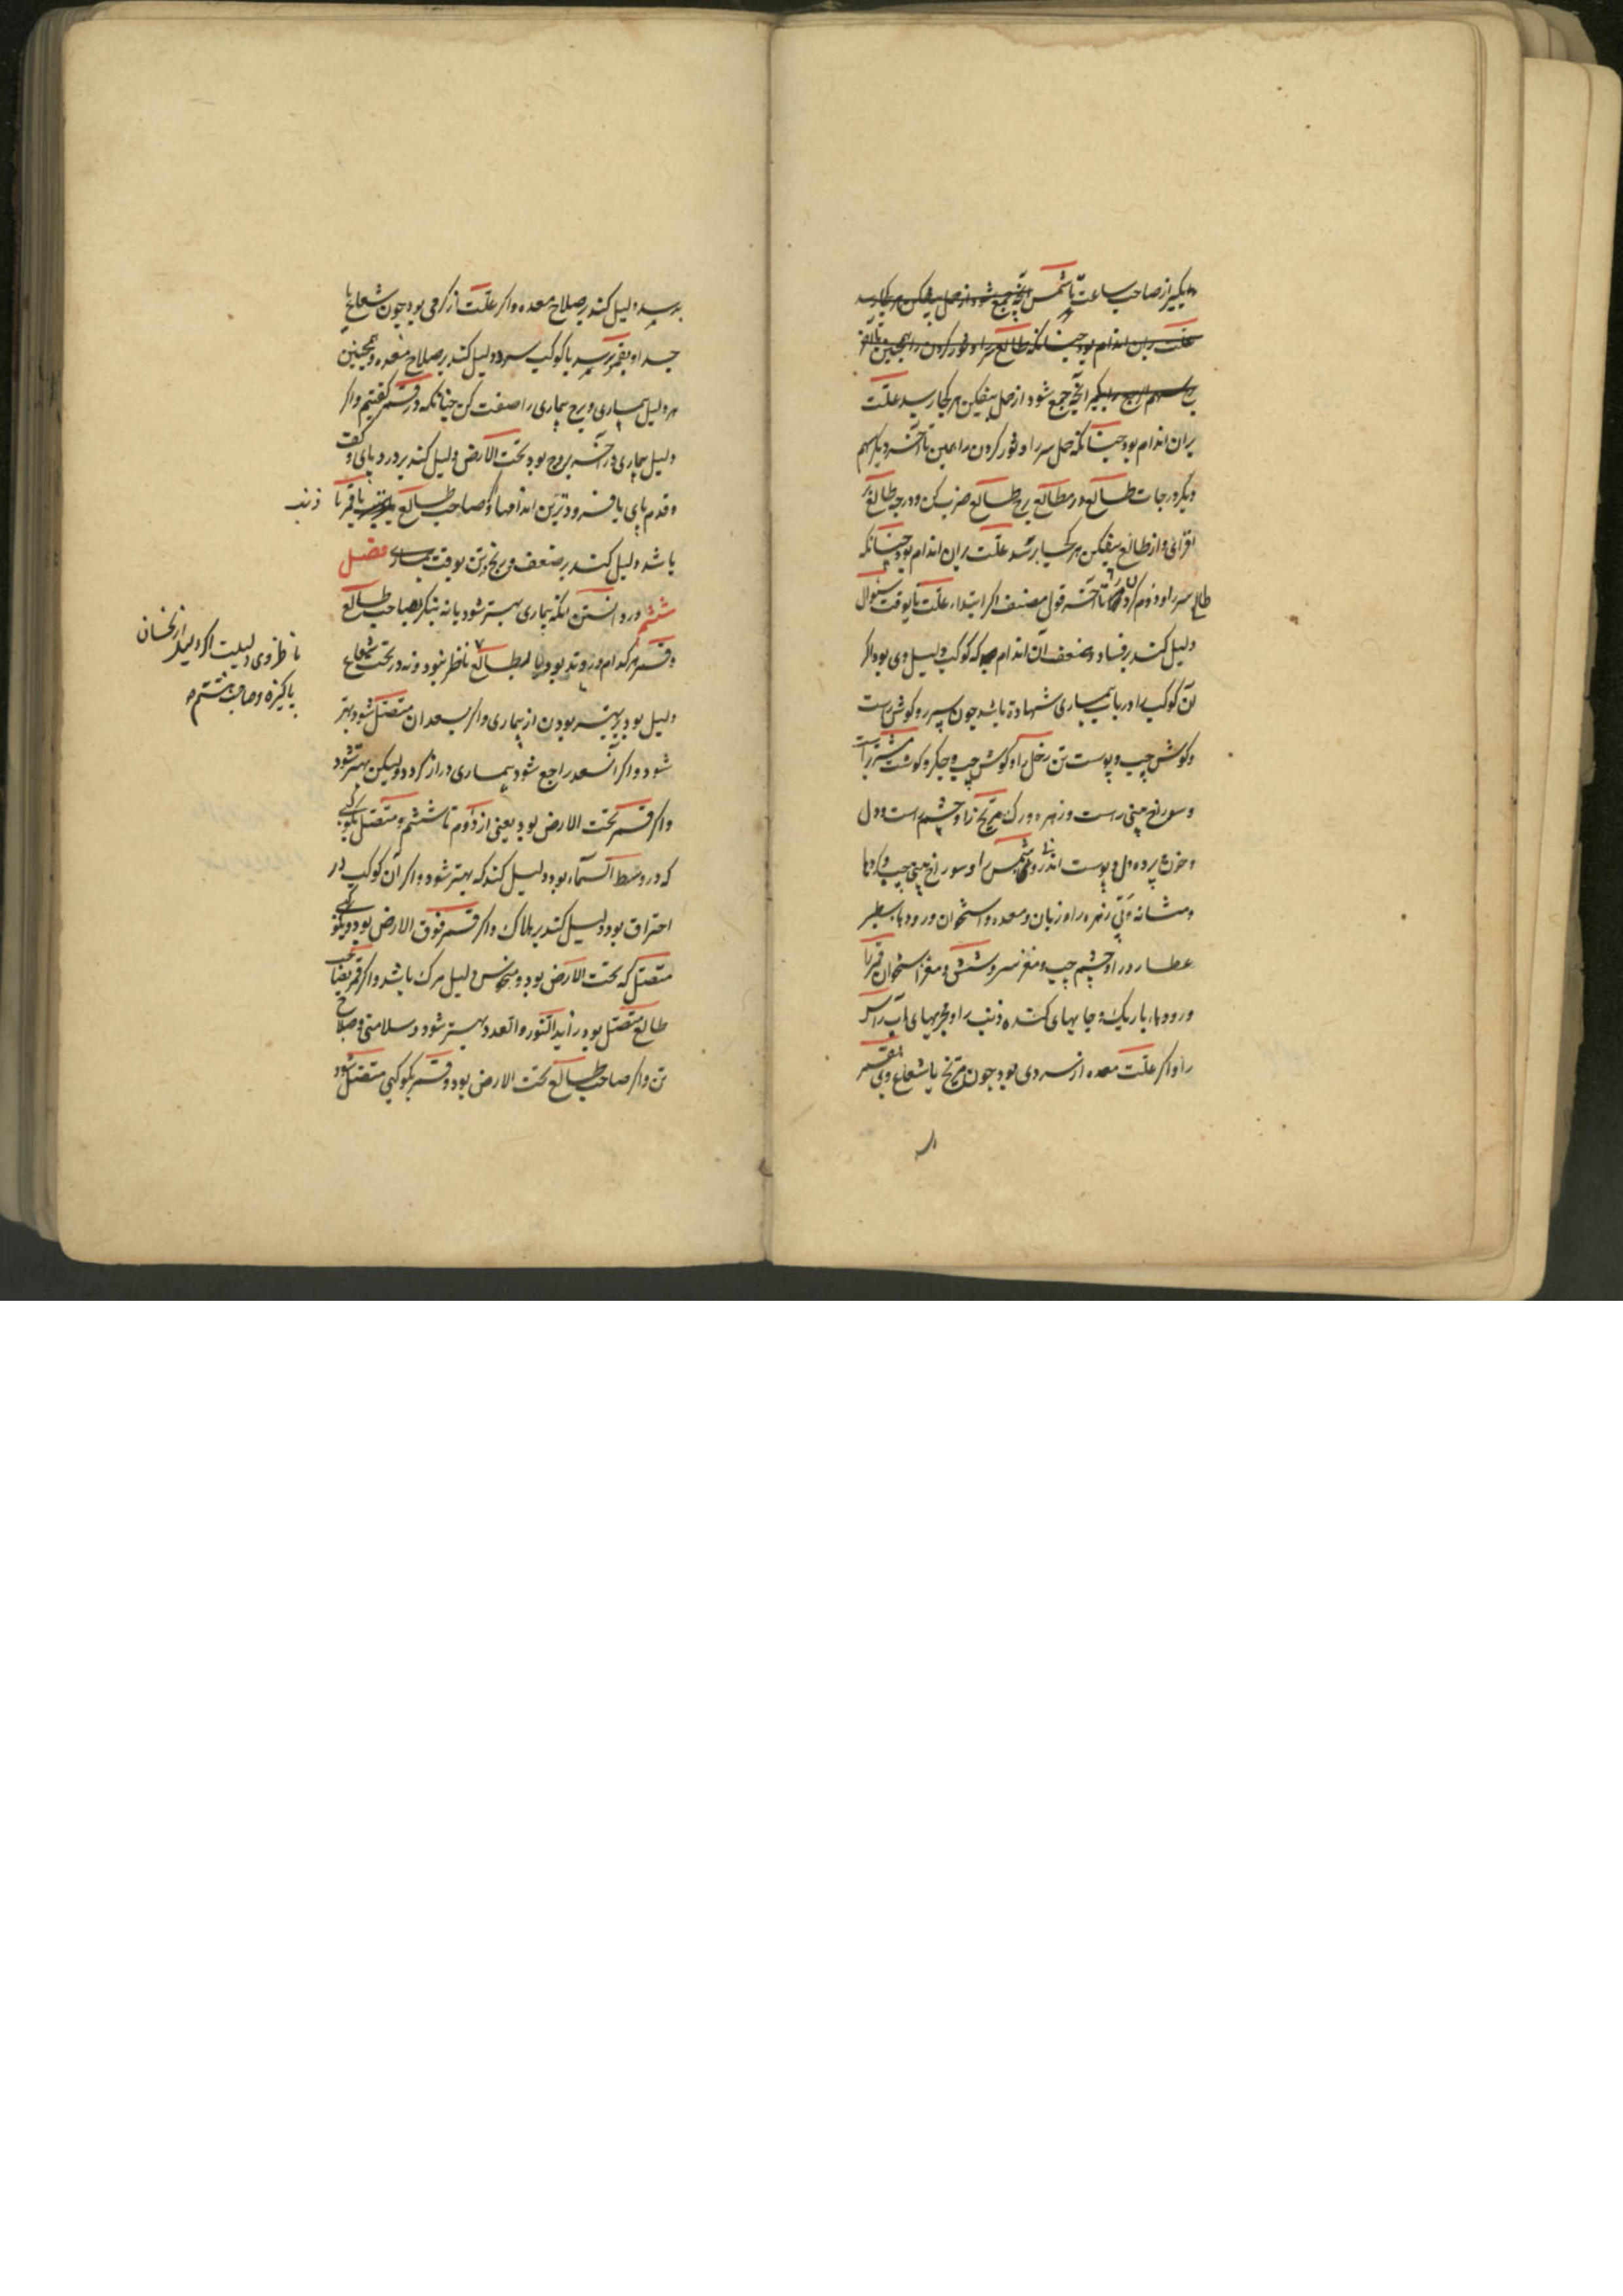 بگیر از صاحب ساعت تا شمس آنچه جمع شود از حمل بیفکن هر کجا رسد
علت بران اندام بود چنانکه طالع سر را و ثور کردن را همچنین تا آخر
بگیر آنچه جمع شود از حمل بیفکن هر کجا رسید علت
بران اندام بود چنانکه حمل سر را و ثور کردن را همین تا آخر و دیگر سهم
دیگر درجات طالع در مطالع برج طالع ضرب کن و درجه طالع بر
افزای و از طالع بیفکن هر کجا برسد علت بران اندام بود چنانکه
طالع سر را و دوم کردن را تا آخر قول مصنف اگر ابتداء علت تا بوقت سئوال
دلیل کند بر فساد و ضعف آن اندام که کوکب دلیل وی بود اگر
آن کوکب را در باب بیماری شهادة باشد چون سپرز و کوش راست
و کوش چپ و پوست تن زحل را و کوش چپ و جکر و کوشت مشتری راست
و سوراخ بینی راست و زهره و رک مریخ را و چشم راست و دل
و خون پرده دل و پوست اندرونی شمس را و سوراخ بینی چپ و کردها
و مثانه و پی زهره را و زبان و معده و استخوان و رودها سطبر
عطارد را و چشم چپ و مغز سر و شش و مغز استخوان قمر را
و رودها باریک و جایهای کنده ذنب را و مجریهای آب راس
را و اگر علت معده از سردی بود چون مریخ یا شعاع وی بقمر
برسد دلیل کند بر صلاح معده و اگر علت از کرمی بود چون شعاع یا
جسد او بقمر برسد یا کوکب سرد دلیل کند بر صلاح معده و همچنین
هر دلیل بیماری و برج بیماری را صفت کن چنانکه در قمر کفتیم و اگر
دلیل بیماری در آخر بروج بود تحت الارض دلیل کند بر درد پای و کفت
و قدم پای یا فرودترین اندامها و کر صاحب طالع یا قمر با ذنب
باشد دلیل کند بر ضعف و رنج تن بوقت بیماری فصل
ششم در دانستن آنکه بیماری بهتر شود یا نه بنکر بصاحب طالع
و قمر هر کدام در وتد بود یا بطالع ناظر بود و نه در تحت شعاع
دلیل بود بر بهتر بودن از بیماری و اگر بسعد ان متصل شود بهتر
شود و اگر آن سعد راجع شود بیماری دراز کردد ولیکن بهتر شود
و اگر قمر تحت الارض بود یعنی از دوم تا ششم و متصل بکوکبی
که در وسط السماء بود دلیل کند که بهتر شود و اگر آن کوکب در
احتراق بود دلیل کند بر هلاک و اگر قمر فوق الارض بود و بکوکبی
متصل که تحت الارض بود و منحوس دلیل مرک باشد و اگر قمر بصاحب
طالع متصل بود زاید النور و العدد بهتر شود و سلامتی و صلاح
تن و اگر صاحب طالع تحت الارض بود و قمر بکوکبی متصل شود
ناظر وی دلیلیت اگر دلیل از نحسان
پاکیزه و صاحب هشتم